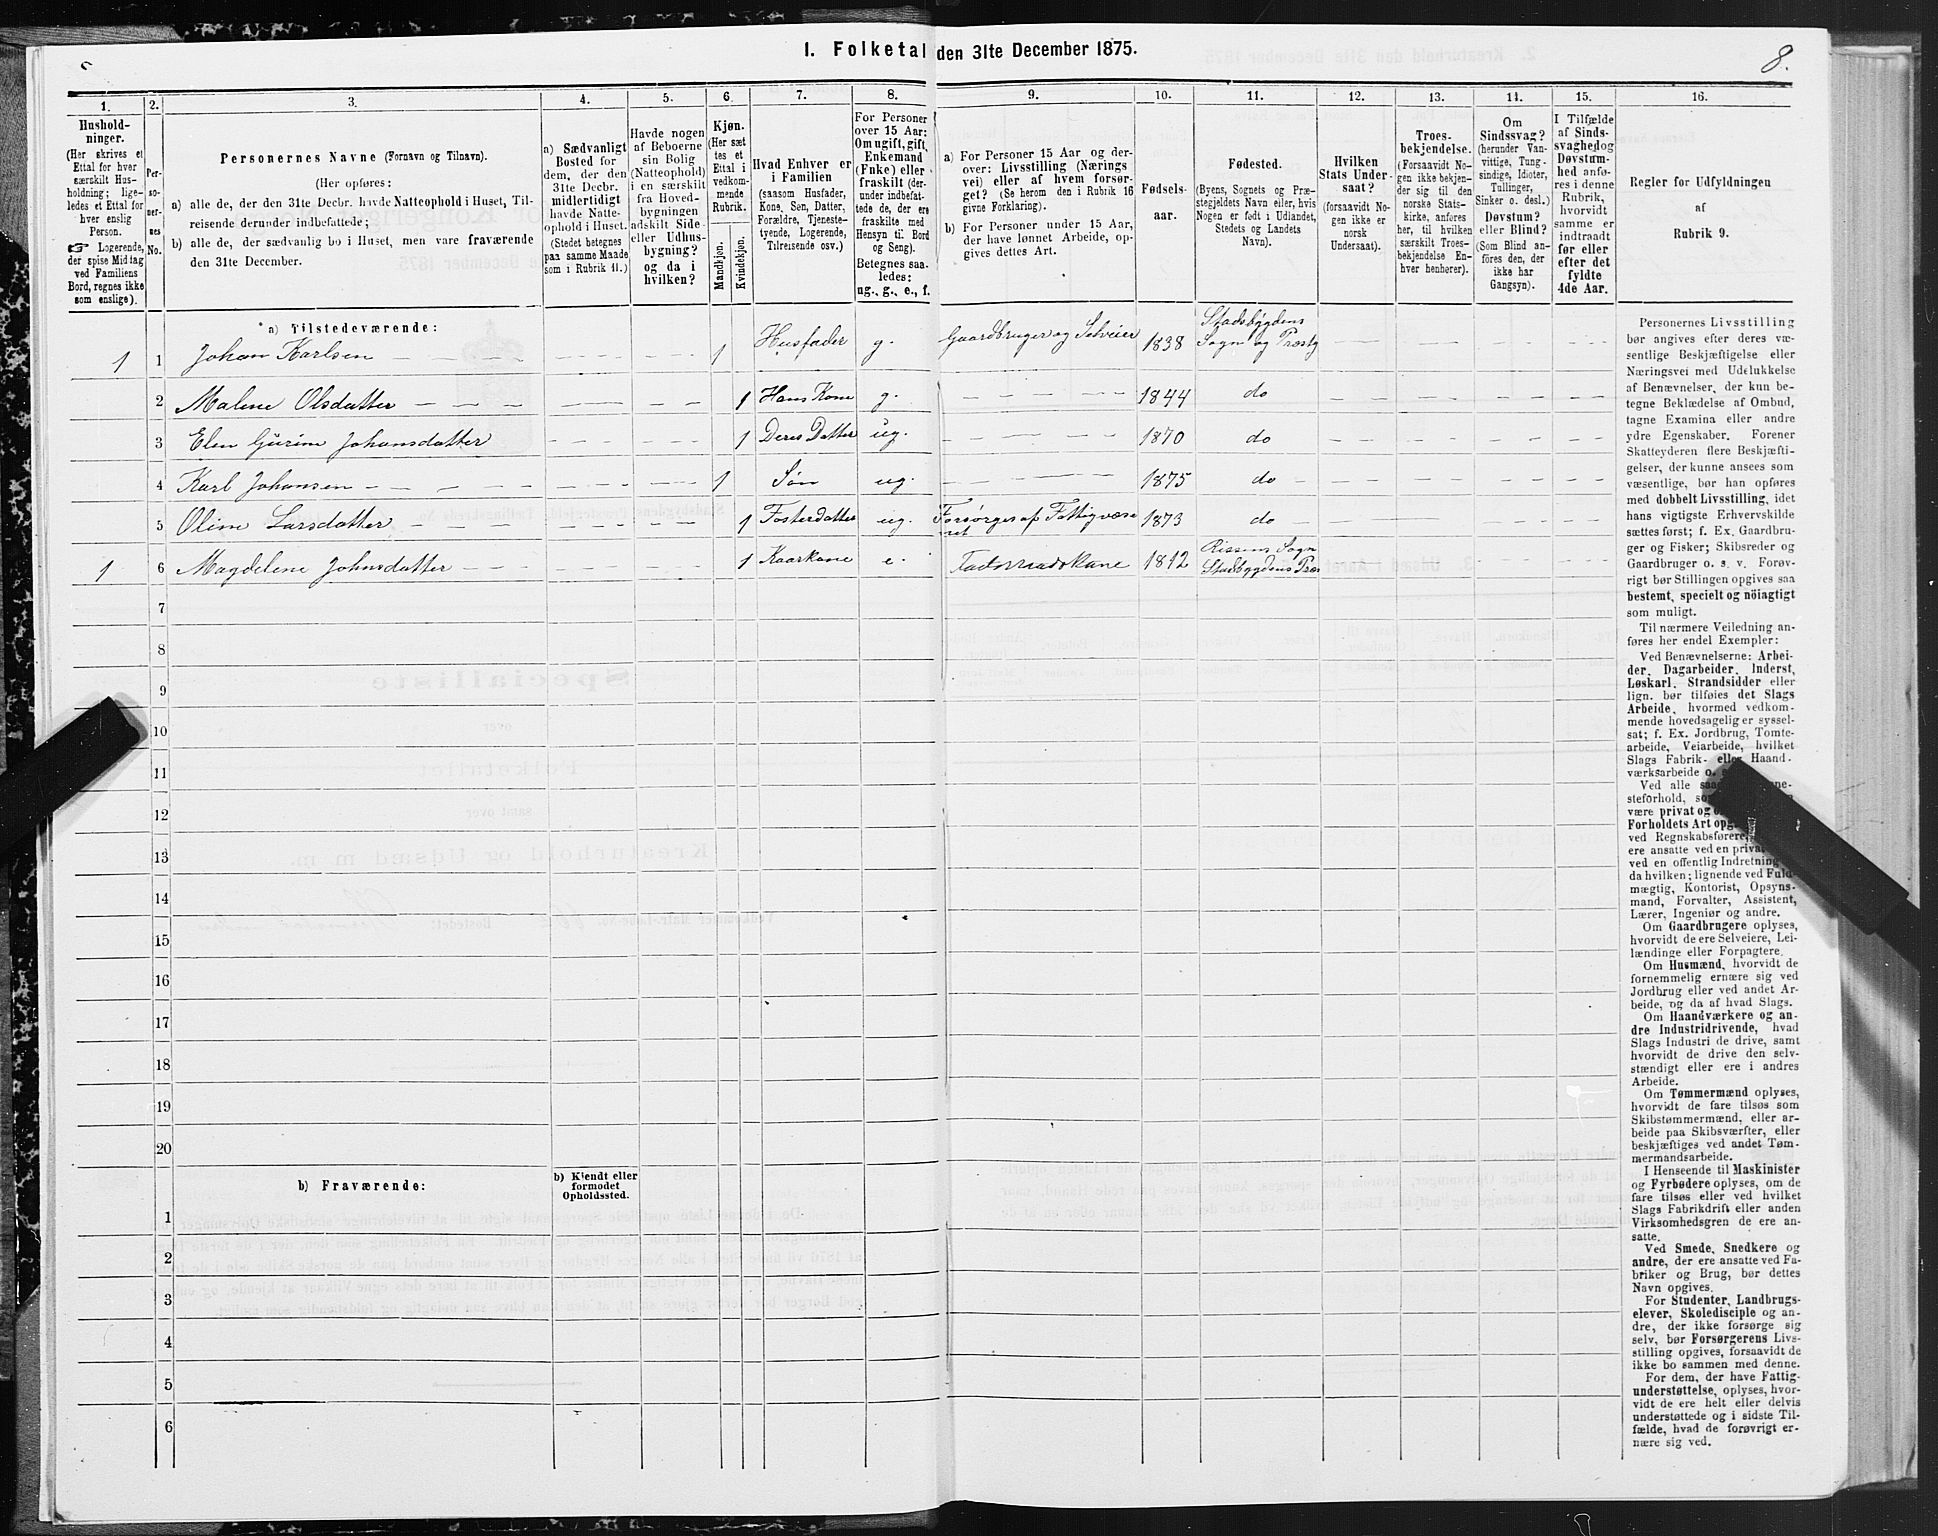 I. Folketal den 31te December 1875.
8.
1. 2. 3. 4. 5. 6. 7. 8. 9. 10. 11. 12. 13. 14. 15. 16.
Hushold-
ninger.
(Her skrives et
Ettal for hver
særskilt Hus-
holdning; lige-
ledes et Ettal for
hver enslig
Person.
☞ Logerende,
der spise Middag
ved Familiens
Bord, regnes ikke
som enslige).
Per-
so-
ner-
nes
No.
Personernes Navne (Fornavn og Tilnavn).
(Her opføres:
a) alle de, der den 31te Decbr. havde Natteophold i Huset, Til-
reisende derunder indbefattede;
b) alle de, der sædvanlig bo i Huset, men vare fraværende
den 31te December.
a) Sædvanligt
Bosted for
dem, der den
31te Decbr.
midlertidigt
havde Natte-
ophold i Huset.
(Stedet betegnes
paa samme Maade
som i Rubrik 11.)
Havde nogen
af Beboerne
sin Bolig
(Natteophold)
i en særskilt
fra Hoved-
bygningen
adskilt Side-
eller Udhus-
bygning?
og da i
hvilken?
Kjøn.
(Her sæt-
tes et
Ettal i
vedkom-
mende
Rubrik.
Mandkjøn.
Kvindekjøn.
Hvad Enhver er
i Familien
(saasom Husfader,
Kone, Søn, Datter,
Forældre, Tjeneste-
tyende, Logerende,
Tilreisende osv.)
For Personer
over 15 Aar:
Om ugift, gift,
Enkemand
(Enke) eller
fraskilt (der-
under indbefat-
tede de, der ere
fraskilte med
Hensyn til Bord
og Seng).
Betegnes saa-
ledes:
ug., g., e., f.
a) For Personer 15 Aar og der-
over: Livsstilling (Nærings-
vei) eller af hvem forsør-
get? (Se herom den i Rubrik 16
givne Forklaring).
b) For Personer under 15 Aar,
der have lønnet Arbeide, op-
gives dettes Art.
Fødsels-
aar.
Fødested.
(Byens, Sognets og Præ-
stegjeldets Navn eller, hvis
Nogen er født i Udlandet,
Stedets og Landets
Navn).
Hvilken
Stats Under-
saat?
(forsaavidt No-
gen ikke er
norsk
Undersaat).
Troes-
bekjendelse.
(Forsaavidt No-
gen ikke bekjen-
der sig til den
norske Stats-
kirke, anføres
her, til hvilken
særskilt Troes-
bekjendelse En-
hver henhører).
Om
Sindssvag?
(herunder Van-
vittige, Tung-
sindige, Idioter,
Tullinger,
Sinker o. desl.)
Døvstum?
eller Blind?
(Som Blind an-
føres den, der
ikke har
Gangsyn).
I Tilfælde
af Sinds-
svaghed og
Døvstum-
hed anfø-
res i denne
Rubrik,
hvorvidt
samme er
indtraadt
før eller
efter det
fyldte
4de Aar.
Regler for Udfyldningen
af
Rubrik 9.
a) Tilstedeværende:
1 1 Johan Karlsen 1 Husfader g. Gaardbruger og Selveier 1838 Stadsbygdens
Sogn og Præstg
2 Malene Olsdatter 1 Hans Kone g. 1844 do
3 Elen Gurine Johansdatter 1 Deres Datter ug. 1870 do
4 Karl Johansen 1 Søn ug. 1875 do
5 Oline Larsdatter 1 Fosterdatter ug. Forsørges af Fattigvæse
net 1873 do
1 6 Magdelene Johnsdatter 1 Kaarkone e. 1812 Rissens Sogn
Stadsbygdens Præs
7
8
9
10
11
12
13
14
15
16
17
18
19
20
b) Fraværende:
b) Kjendt eller
formodet
Opholdssted.
1
2
3
4
5
6
Personernes Livsstilling
bør angives efter deres væ-
sentlige Beskjæftigelse eller
Næringsvei med Udelukkelse
af Benævnelser, der kun be-
tegne Beklædelse af Ombud,
tagne Examina eller andre
ydre Egenskaber. Forener
Skatteyderen flere Beskjæfti-
gelser, der kunne ansees som
væsentlige, bør han opføres
med dobbelt Livsstilling, idet
hans vigtigste Erhvervskilde
sættes først; f. Ex. Gaardbru-
ger og Fisker; Skibsreder og
Gaardbruger o. s. v. Forøv-
rigt bør Stillingen opgives saa
bestemt, specielt og nöiagtigt
som muligt.
Til nærmere Veiledning an-
føres her endel Exempler:
Ved Benævnelserne: Arbei-
der, Dagarbeider, Inderst,
Løskarl, Strandsidder eller
lign. bør tilføies det Slags
Arbeide, hvormed vedkom-
mende hovedsagelig er syssel-
sat; f. Ex. Jordbrug, Tomte-
arbeide, Veiarbeide, hvilket
Slags Fabrik- eller Haand-
værksarbeide o.
Ved alle
steforhold,
være privat og
Forholdets Art
ved Regnskabsførere,
ere ansatte ved en privat
ved en offentlig Indretning
da hvilken; lignende ved Fuld-
mægtig, Kontorist, Opsyns-
mand, Forvalter, Assistent,
Lærer, Ingeniør og andre.
Om Gaardbrugere oplyses,
hvorvidt de ere Selveiere, Lei-
lændinge eller Forpagtere.
Om Husmænd, hvorvidt de
fornemmelig ernære sig ved
Jordbrug eller ved andet Ar-
beide, og da af hvad Slags.
Om Haandværkere og an-
dre Industridrivende, hvad
Slags Industri de drive, samt
hvorvidt de drive den selv-
stændigt eller ere i andres
Arbeide.
Om Tømmermænd oplyses,
hvorvidt de fare tilsøs som
Skibstømmermænd, eller ar-
beide paa Skibsværfter, eller
beskjæftiges ved andet Tøm-
mermandsarbeide.
I Henseende til Maskinister
og Fyrbødere oplyses, om de
fare tilsøs eller ved hvilket
Slags Fabrikdrift eller anden
Virksomhedsgren de ere an-
satte.
Ved Smede, Snedkere og
andre, der ere ansatte ved Fa-
briker og Brug, bør dettes
Navn opgives.
For Studenter, Landbrugs-
elever, Skoledisciple og an-
dre, der ikke forsørge sig
selv, bør Forsørgerens Livs-
stilling opgives, forsaavidt de
ikke bo sammen med denne.
For dem, der have Fattig-
understøttelse, oplyses, hvor-
vidt de ere helt eller delvis
understøttede og i sidste Til-
fælde, hvad de forøvrigt er-
nære sig ved.